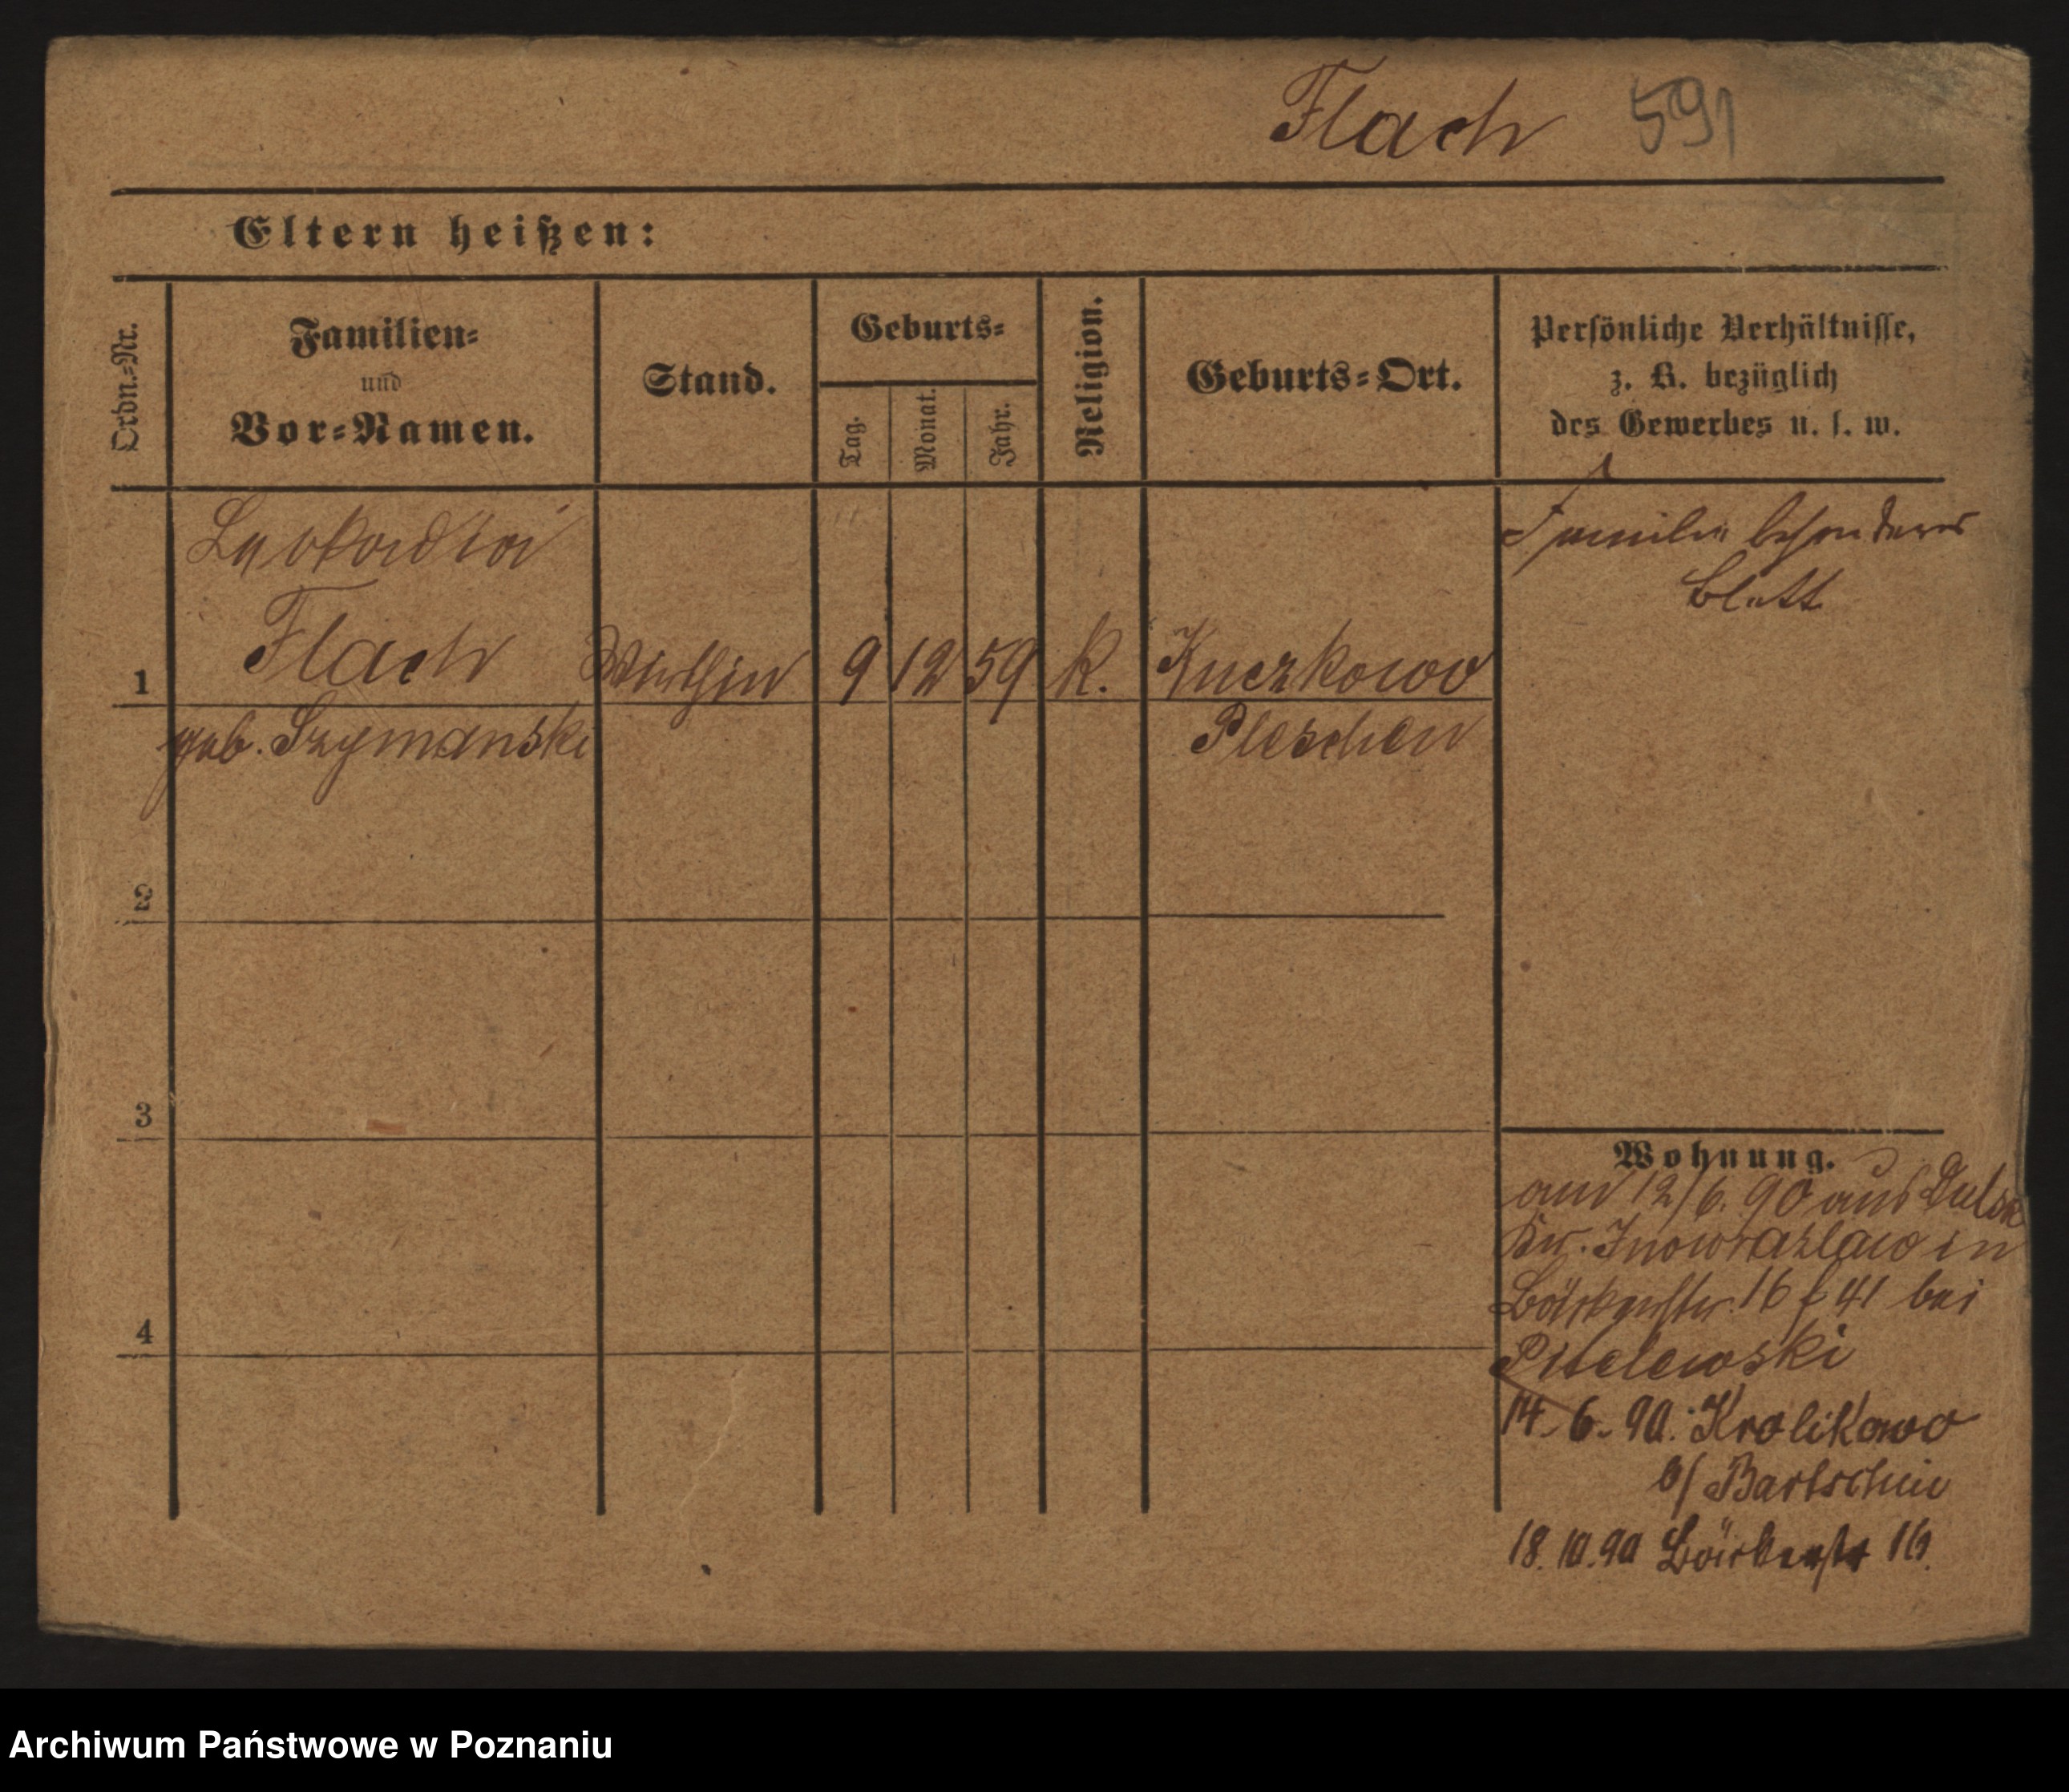 Flach 591
Eltern heißen:
Ordn.-Nr.
Familien-
und
Vor-Namen.
Stand.
Geburts-
Tag.
Monat.
Jahr.
Religion.
Geburts-Ort.
Persönliche Verhältnisse,
z. B. bezüglich
des Gewerbes u. s. w.
Leokadia
Familie besonderes
Blatt
1 Flach Wirthin 9 12 59 k. Kuczkowo
geb. Szymanski Pleschen
2
3
4
Wohnung.
am 12/6. 90 aus
Kr. Inowrazlaw in
Bäckerstr. 16 f 41 bei
14. 6. 90. Krolikowo
b/ Bartschin
18. 10. 90 Bäckerstr 16.
Archiwum Państwowe w Poznaniu